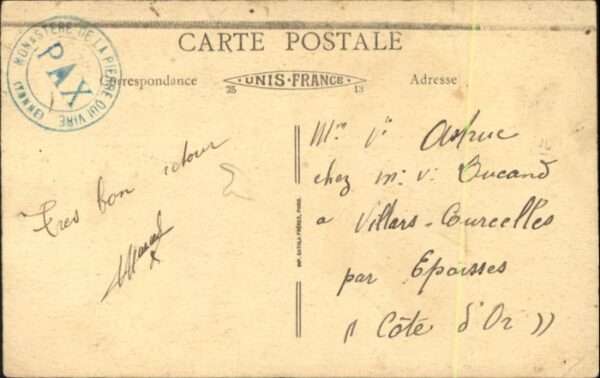 CARTE POSTALE
MONASTÈRE DE LA PIERRE QUI VIRE
(YONNE)
PAX
Correspondance
UNIS-FRANCE
25 13
Adresse
Très bon retour
Marcel
Mme Ve Astruc
chez Mr Vr Bucand
a Villars-Courcelles
par Epoisses
(( Côte d'Or ))
IMP. CATALA FRÈRES, PARIS